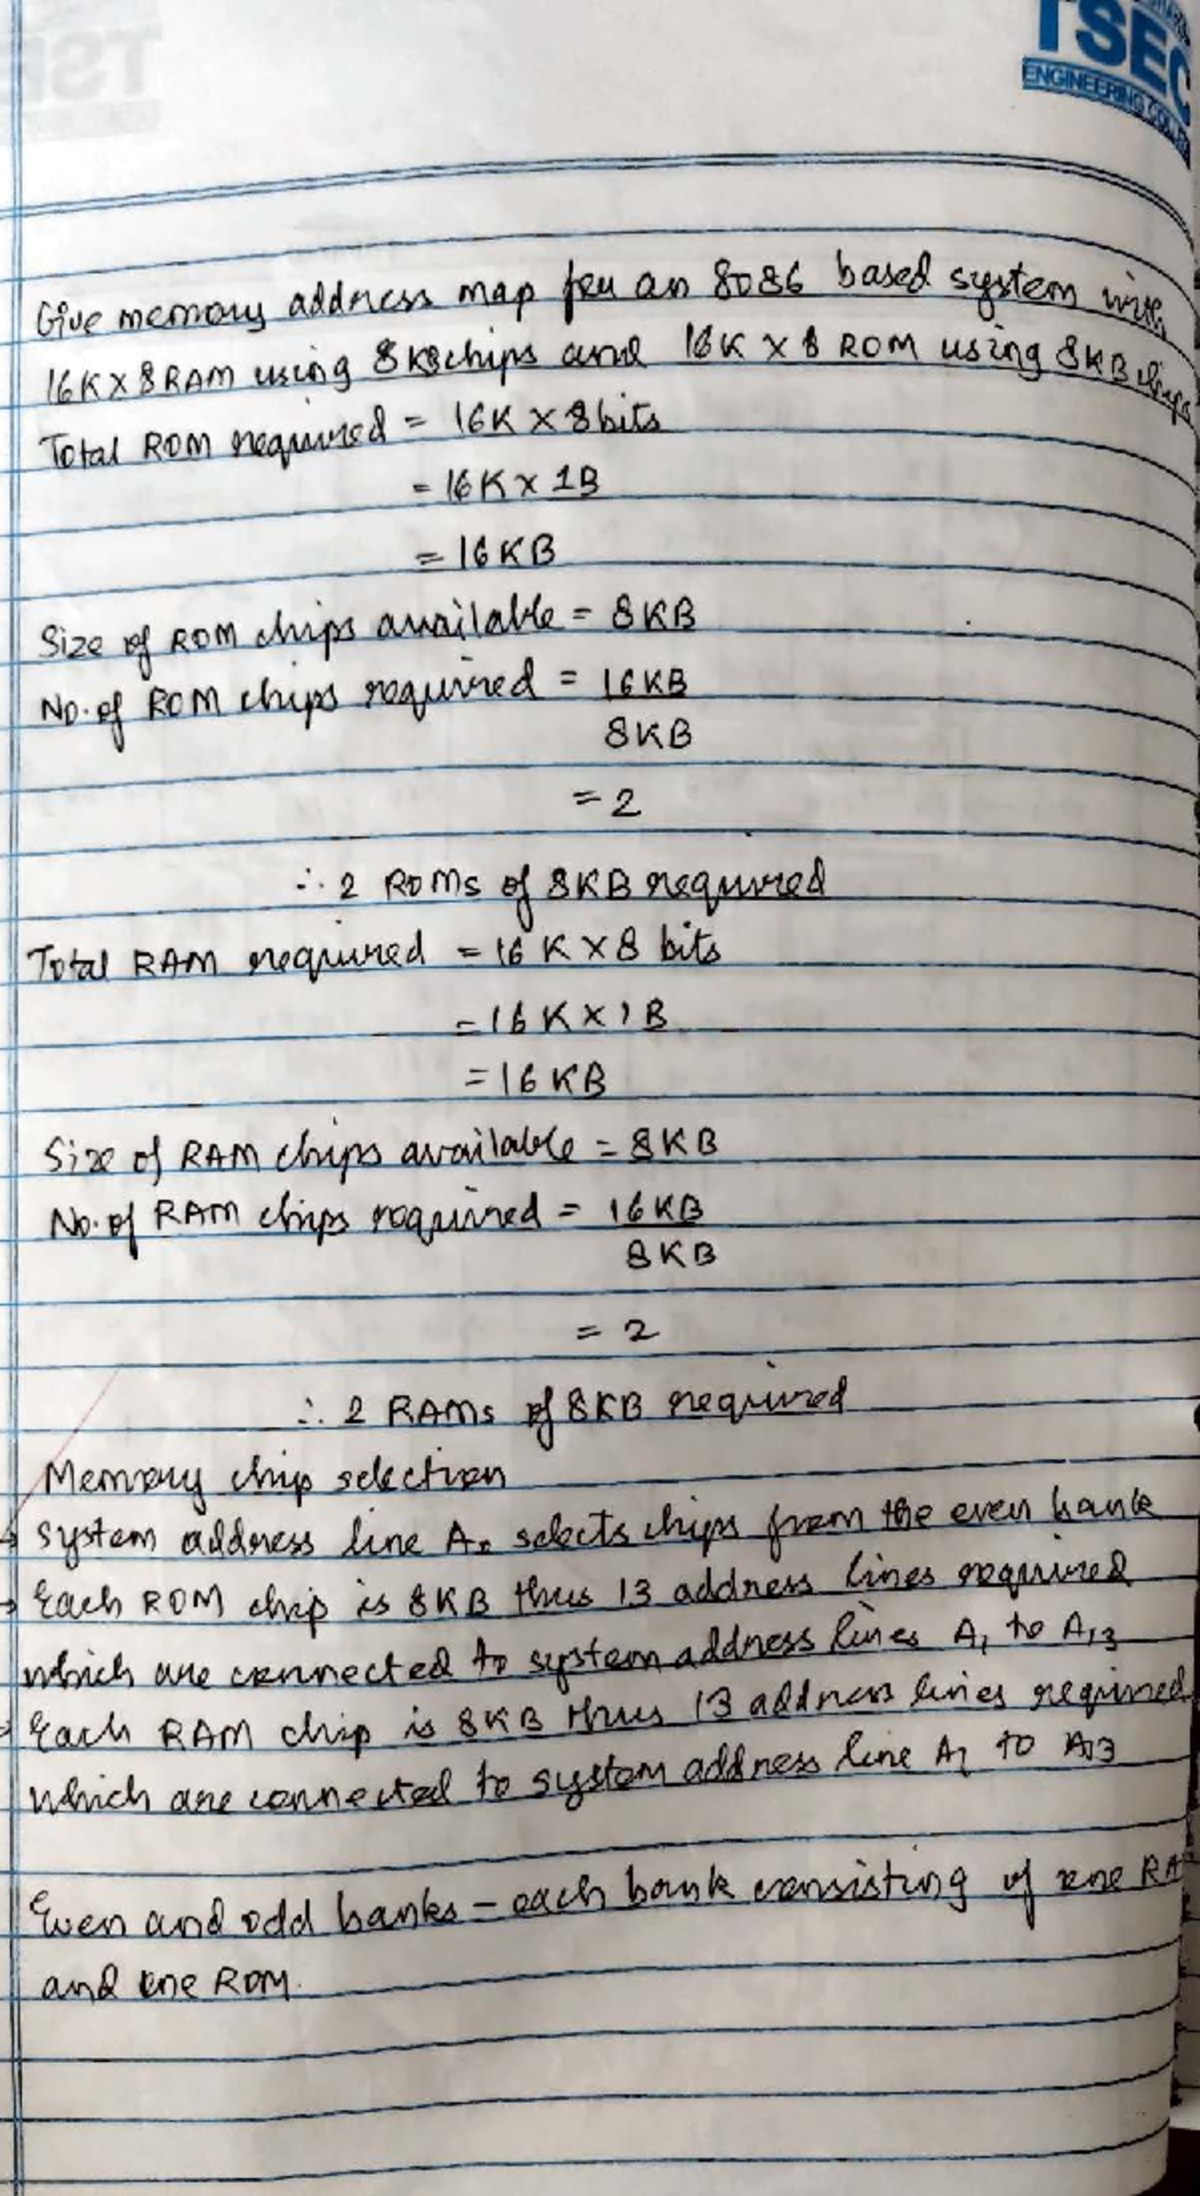 TSEC
ENGINEERING
Give memory address map for an 8086 based system with
16K X 8 RAM using 8KB chips and 16K X 8 ROM using 8KB chips
Total ROM required = 16K X 8 bits
= 16K X 1B
= 16KB
Size of ROM chips available = 8KB
No. of ROM chips required = 16KB
8KB
= 2
∴ 2 ROMs of 8KB required
Total RAM required = 16 K X 8 bits
= 16 K X 1 B
= 16 KB
Size of RAM chips available = 8KB
No. of RAM chips required = 16KB
8KB
= 2
∴ 2 RAMs of 8KB required
Memory chip selection
→ System address line A₀ selects chips from the even bank
→ Each ROM chip is 8KB thus 13 address lines required
which are connected to system address lines A₁ to A₁₃
→ Each RAM chip is 8KB thus 13 address lines required
which are connected to system address line A₁ to A₁₃
Even and odd banks - each bank consisting of one RA
and one ROM.